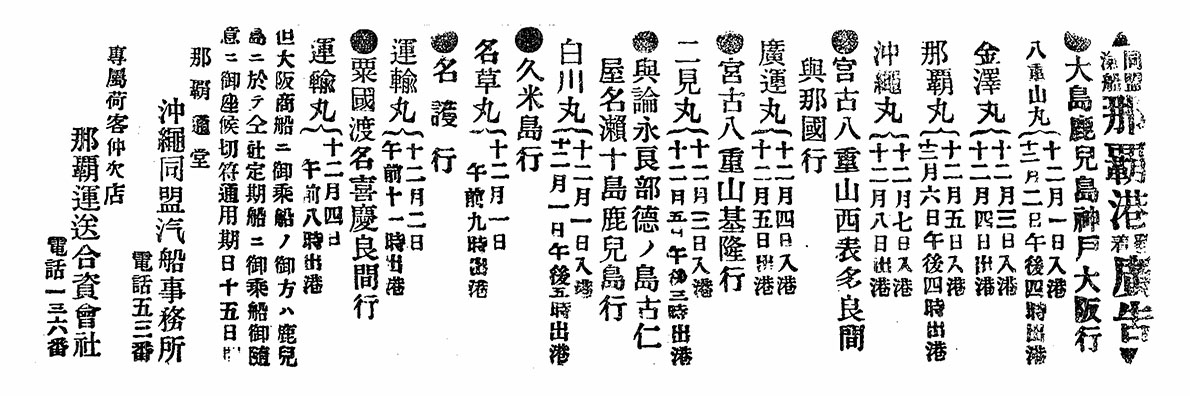 同盟汽船那覇港發着廣告
●大島鹿兒島神戸大阪行
八重山丸{十二月一日入港 十二月二日午後四時出港
金澤丸{十二月三日入港 十二月四日出港
那覇丸{十二月五日入港 十二月六日午後四時出港
沖繩丸{十二月七日入港 十二月八日出港
●宮古八重山西表多良間
與那國行
廣運丸{十二月四日入港 十二月五日出港
●宮古八重山基隆行
二見丸{十二月三日入港 十二月五日午後三時出港
●與論永良部德ノ島古仁
屋名瀬十島鹿兒島行
白川丸{十二月一日入港 十二月一日午後五時出港
●久米島行
名草丸{十二月一日 午前九時出港
●名護行
運輸丸{十二月二日 午前十一時出港
●粟國渡名喜慶良間行
運輸丸{十二月四日 午前八時出港
但大阪商船ニ御乘船ノ御方ハ鹿兒
島ニ於テ仝社定期船ニ御乘船御隨
意ニ御座候切符通用期日十五日間
那覇通堂
沖繩同盟汽船事務所
電話五三番
專屬荷客仲次店
那覇運送合資會社
電話一三六番